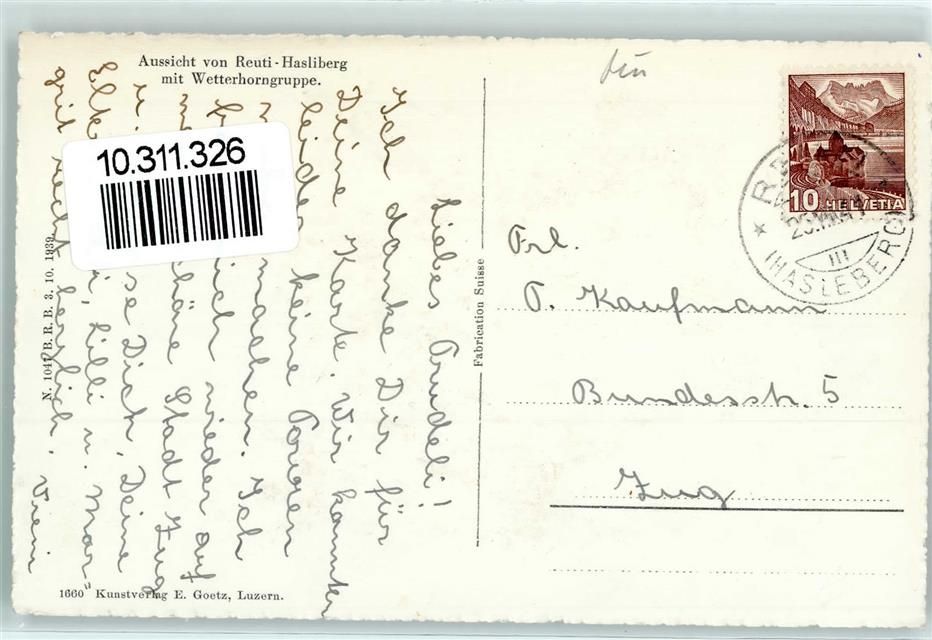 Aussicht von Reuti-Hasliberg
mit Wetterhorngruppe.
10.311.326
Liebes Trudeli!
Ich danke Dir für
Deine Karte. Wir konnten
leider keine Touren
machen. Ich
mich wieder auf
schöne Stadt Zug
Dich, Deine
Lilli u. Mar-
grit recht herzlich.
Vreni
N. 1041 B. R. B. 3. 10. 1939.
1660 Kunstverlag E. Goetz, Luzern.
Fabrication Suisse
10 HELVETIA
(HASLEBERG)
Frl.
T. Kaufmann
Bundesstr. 5
Zug